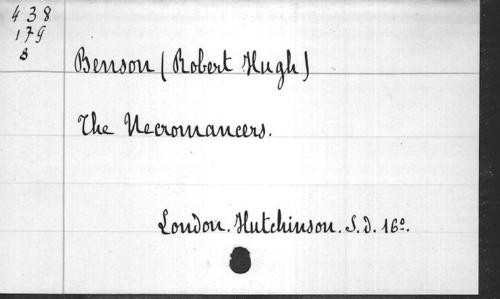 438
179
B
Benson (Robert Hugh)
The Necromancers.
London. Hutchinson. S. d. 16º.